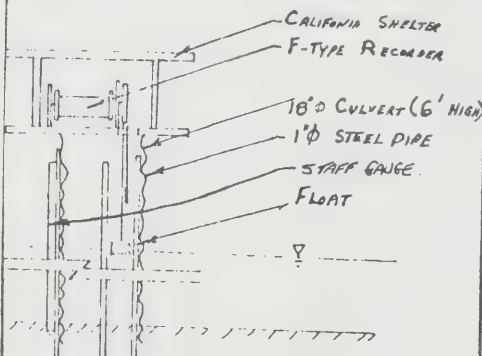 CALIFONIA SHELTER
F-TYPE RECORDER
18"Φ CULVERT (6' HIGH)
1"Φ STEEL PIPE
STAFF GAUGE
FLOAT